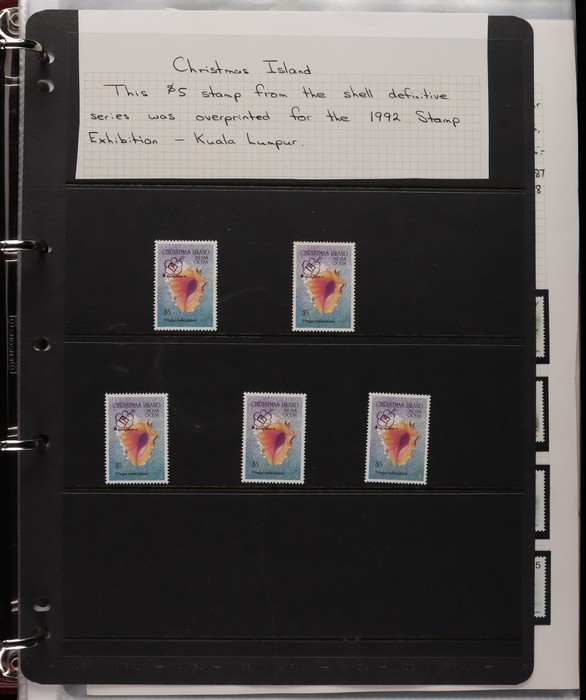 Christmas Island
This $5 stamp from the shell definitive
series was overprinted for the 1992 Stamp
Exhibition - Kuala Lumpur.
CHRISTMAS ISLAND
INDIAN
OCEAN
$5
CHRISTMAS ISLAND
INDIAN
OCEAN
$5
CHRISTMAS ISLAND
INDIAN
OCEAN
$5
CHRISTMAS ISLAND
INDIAN
OCEAN
$5
CHRISTMAS ISLAND
INDIAN
OCEAN
$5
87
8
5